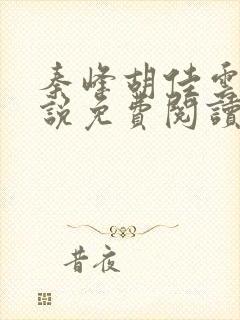 秦峰胡佳雲
說免費閱讀
昔夜